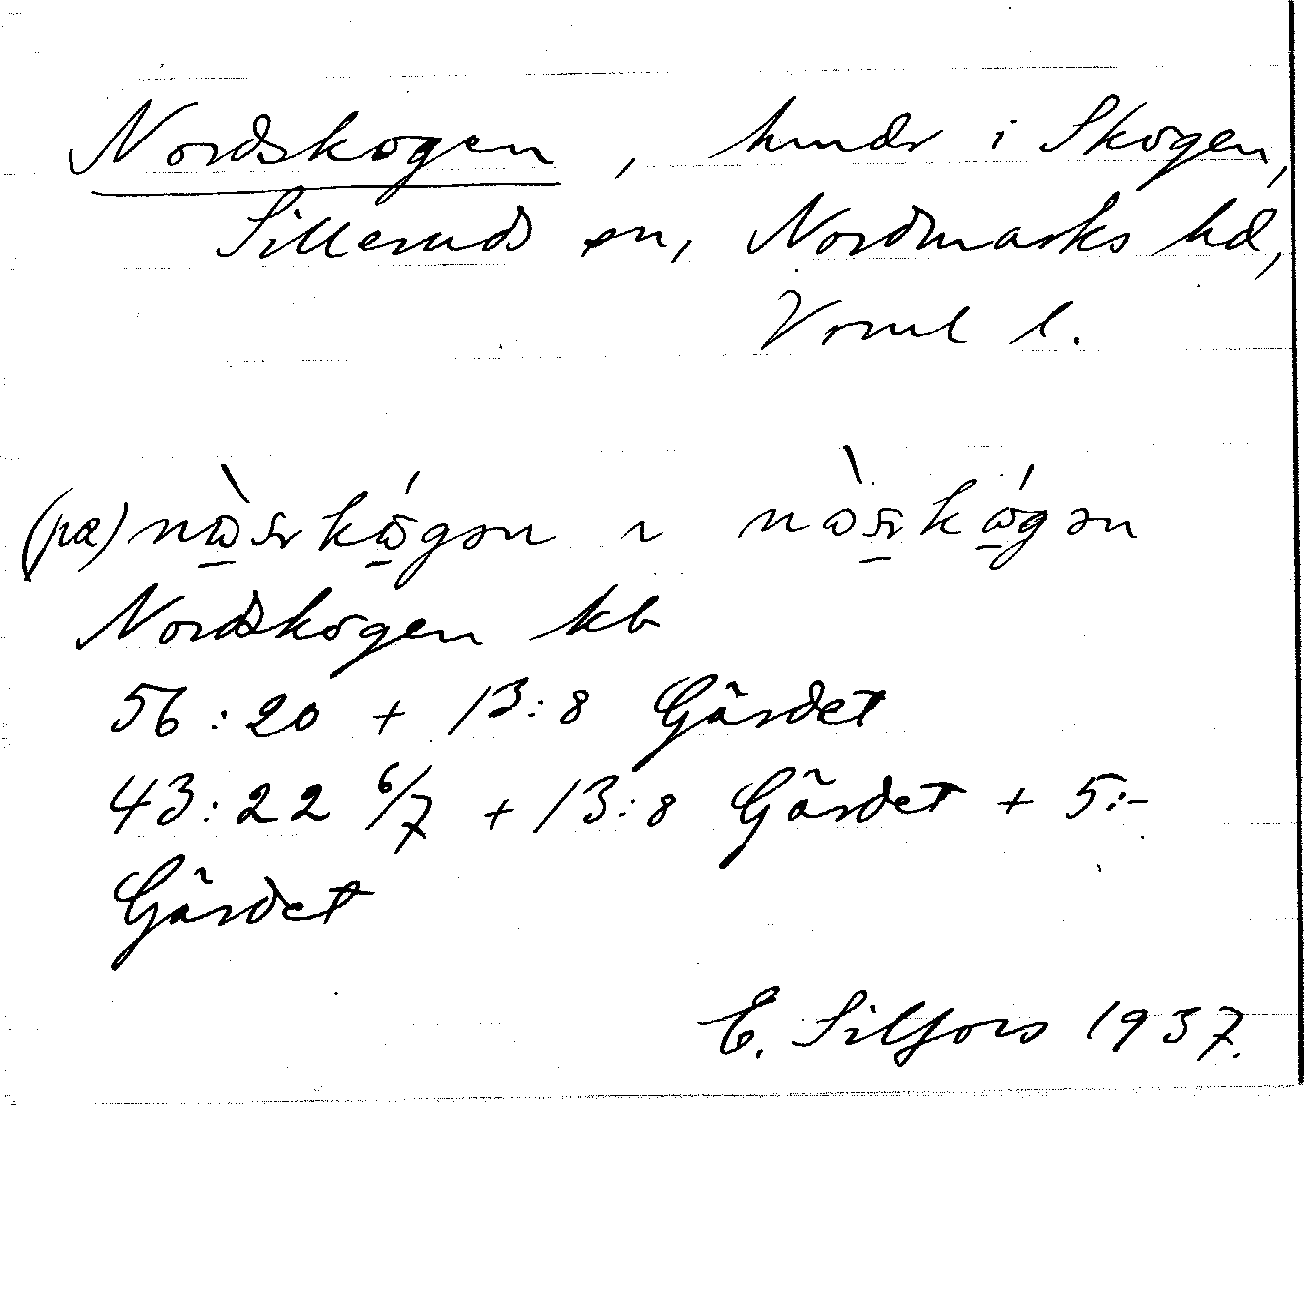 Nordskogen, hmdr i Skogen,
Silleruds sn, Nordmarks hd,
Vrml l.
(pæ) nɷ̀srkɷ́gən ~ nɷ̀srkɷ́gən
Nordskogen kb
56:20 + 13:8 Gärdet
43:22 6/7 + 13:8 Gärdet + 5:-
Gärdet
E. Silfors 1937.